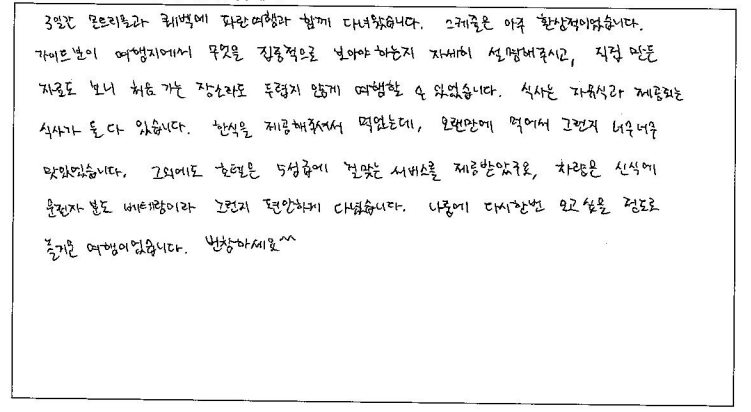 3일간 몬트리올과 퀘벡에 파란여행과 함께 다녀왔습니다. 스케줄은 아주 환상적이었습니다.
가이드분이 여행지에서 무엇을 집중적으로 보아야 하는지 자세히 설명해주시고, 직접 만든
자료도 보니 처음 가는 장소라도 두렵지 않게 여행할 수 있었습니다. 식사는 자유식과 제공되는
식사가 둘 다 있습니다. 한식을 제공해주셔서 먹었는데, 오랜만에 먹어서 그런지 너무너무
맛있었습니다. 그외에도 호텔은 5성급에 걸맞는 서비스를 제공받았구요, 차량은 신식에
운전자 분도 베테랑이라 그런지 편안하게 다녔습니다. 나중에 다시한번 오고 싶을 정도로
즐거운 여행이었습니다. 번창하세요^^